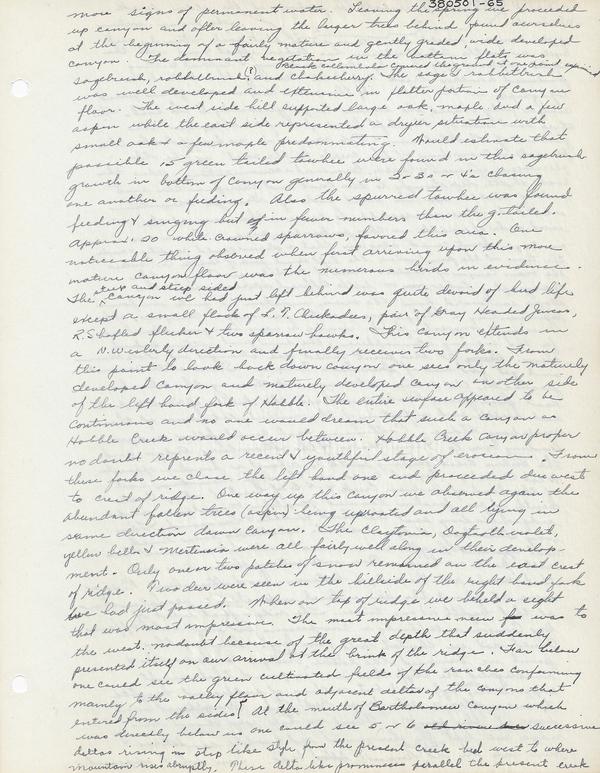 380501-65
more signs of permanent water. Leaving the spring we proceeded
up canyon and after leaving the larger trees behind, found ourselves
at the beginning of a fairly mature and gently graded, wide developed
canyon. The dominant vegetation in the bottom flats was
sagebrush, rabbitbrush, and chokecherry. The sage & rabbitbrush
was well developed and extensive in flatter portion of canyon
floor. The west side hill supported large oak, maple and a few
aspen while the east side represented a dryer situation with
small oak & a few maple predominating. Would estimate that
possible 15 green tailed towhee were found in this sagebrush
growth in bottom of canyon generally in 2s 3s or 4s chasing
one another or feeding. Also the spurred towhee was found
feeding & singing but in fewer numbers than the g. tailed.
Approx. 20 white crowned sparrows, favored this area. One
noticeable thing observed when first arriving upon this more
mature canyon floor was the numerous birds in evidence.
The steep and steep sided canyon we had just left behind was quite devoid of bird life
except a small flock of L. T. Chickadees, pair of Gray Headed Juncos,
R. Shafted flicker & two sparrow hawks. This canyon extends in
a N.Westerly direction and finally receives two forks. From
this point to look back down canyon one sees only the maturely
developed canyon and maturely developed canyon on other side
of the left hand fork of Hobble. The entire surface appeared to be
continuous and no one would dream that such a canyon as
Hobble Creek would occur between. Hobble Creek canyon proper
no doubt reprents a recent & youthful stage of erosion. From
these forks we chose the left hand one and proceeded due west
to crest of ridge. One way up this canyon we observed again the
abundant fallen trees (aspen) being uprooted and all lying in
same direction down canyon. The Claytonia, Dogtooth violet,
yellow bells & Mertensia were all fairly well along in their develop-
ment. Only one or two patches of snow remained on the east crest
of ridge. Two deer were seen in the hillside of the right hand fork
we had just passed. When on top of ridge we beheld a sight
that was most impressive. The most impressive view was to
the west, no doubt because of the great depth that suddenly
presented itself on our arrival at the brink of the ridge. Far below
one could see the green cultivated fields of the ranches conforming
mainly to the valley floor and adjacent deltas of the canyons that
entered from the sides. At the mouth of Bartholomew Canyon which
was directly below us one could see 5 or 6 successive
deltas rising in step like style from the present creek bed west to where
mountain rises abruptly. These delta like prominences parallel the present creek